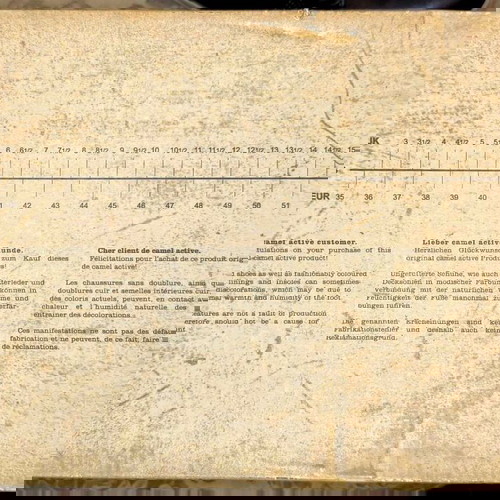 6 6½ 7 7½ 8 8½ 9 9½ 10 10½ 11 11½ 12 12½ 13 13½ 14 14½ 15
3 3½ 4 4½ 5
42 43 44 45 46 47 48 49 50 51
EUR 35 36 37 38 39 40
Cher client de camel active.
Félicitations pour l'achat de ce produit
de camel active!
Les chaussures sans doublure, ainsi que
doublures cuir et semelles intérieures cuir
des coloris actuels, peuvent, en contact
chaleur et l'humidité naturelle des
entraîner des décolorations.
Ces manifestations ne sont pas des
fabrication et ne peuvent, de ce fait, faire
de réclamations.
zum Kauf dieses
camel active customer.
on your purchase of this
camel active product!
shoes as well as fashionably coloured
linings and insoles can sometimes
which may be due to
warmth and humidity of the foot.
are not a fault in production
should not be a cause for
Lieber camel
Herzlichen
original camel active
Ungefütterte Schuhe, wie auch
in modischer
Verbindung mit der natürlichen
Feuchtigkeit der Füße manchmal
Die genannten Erscheinungen sind
und deshalb auch
Reklamationsgrund.